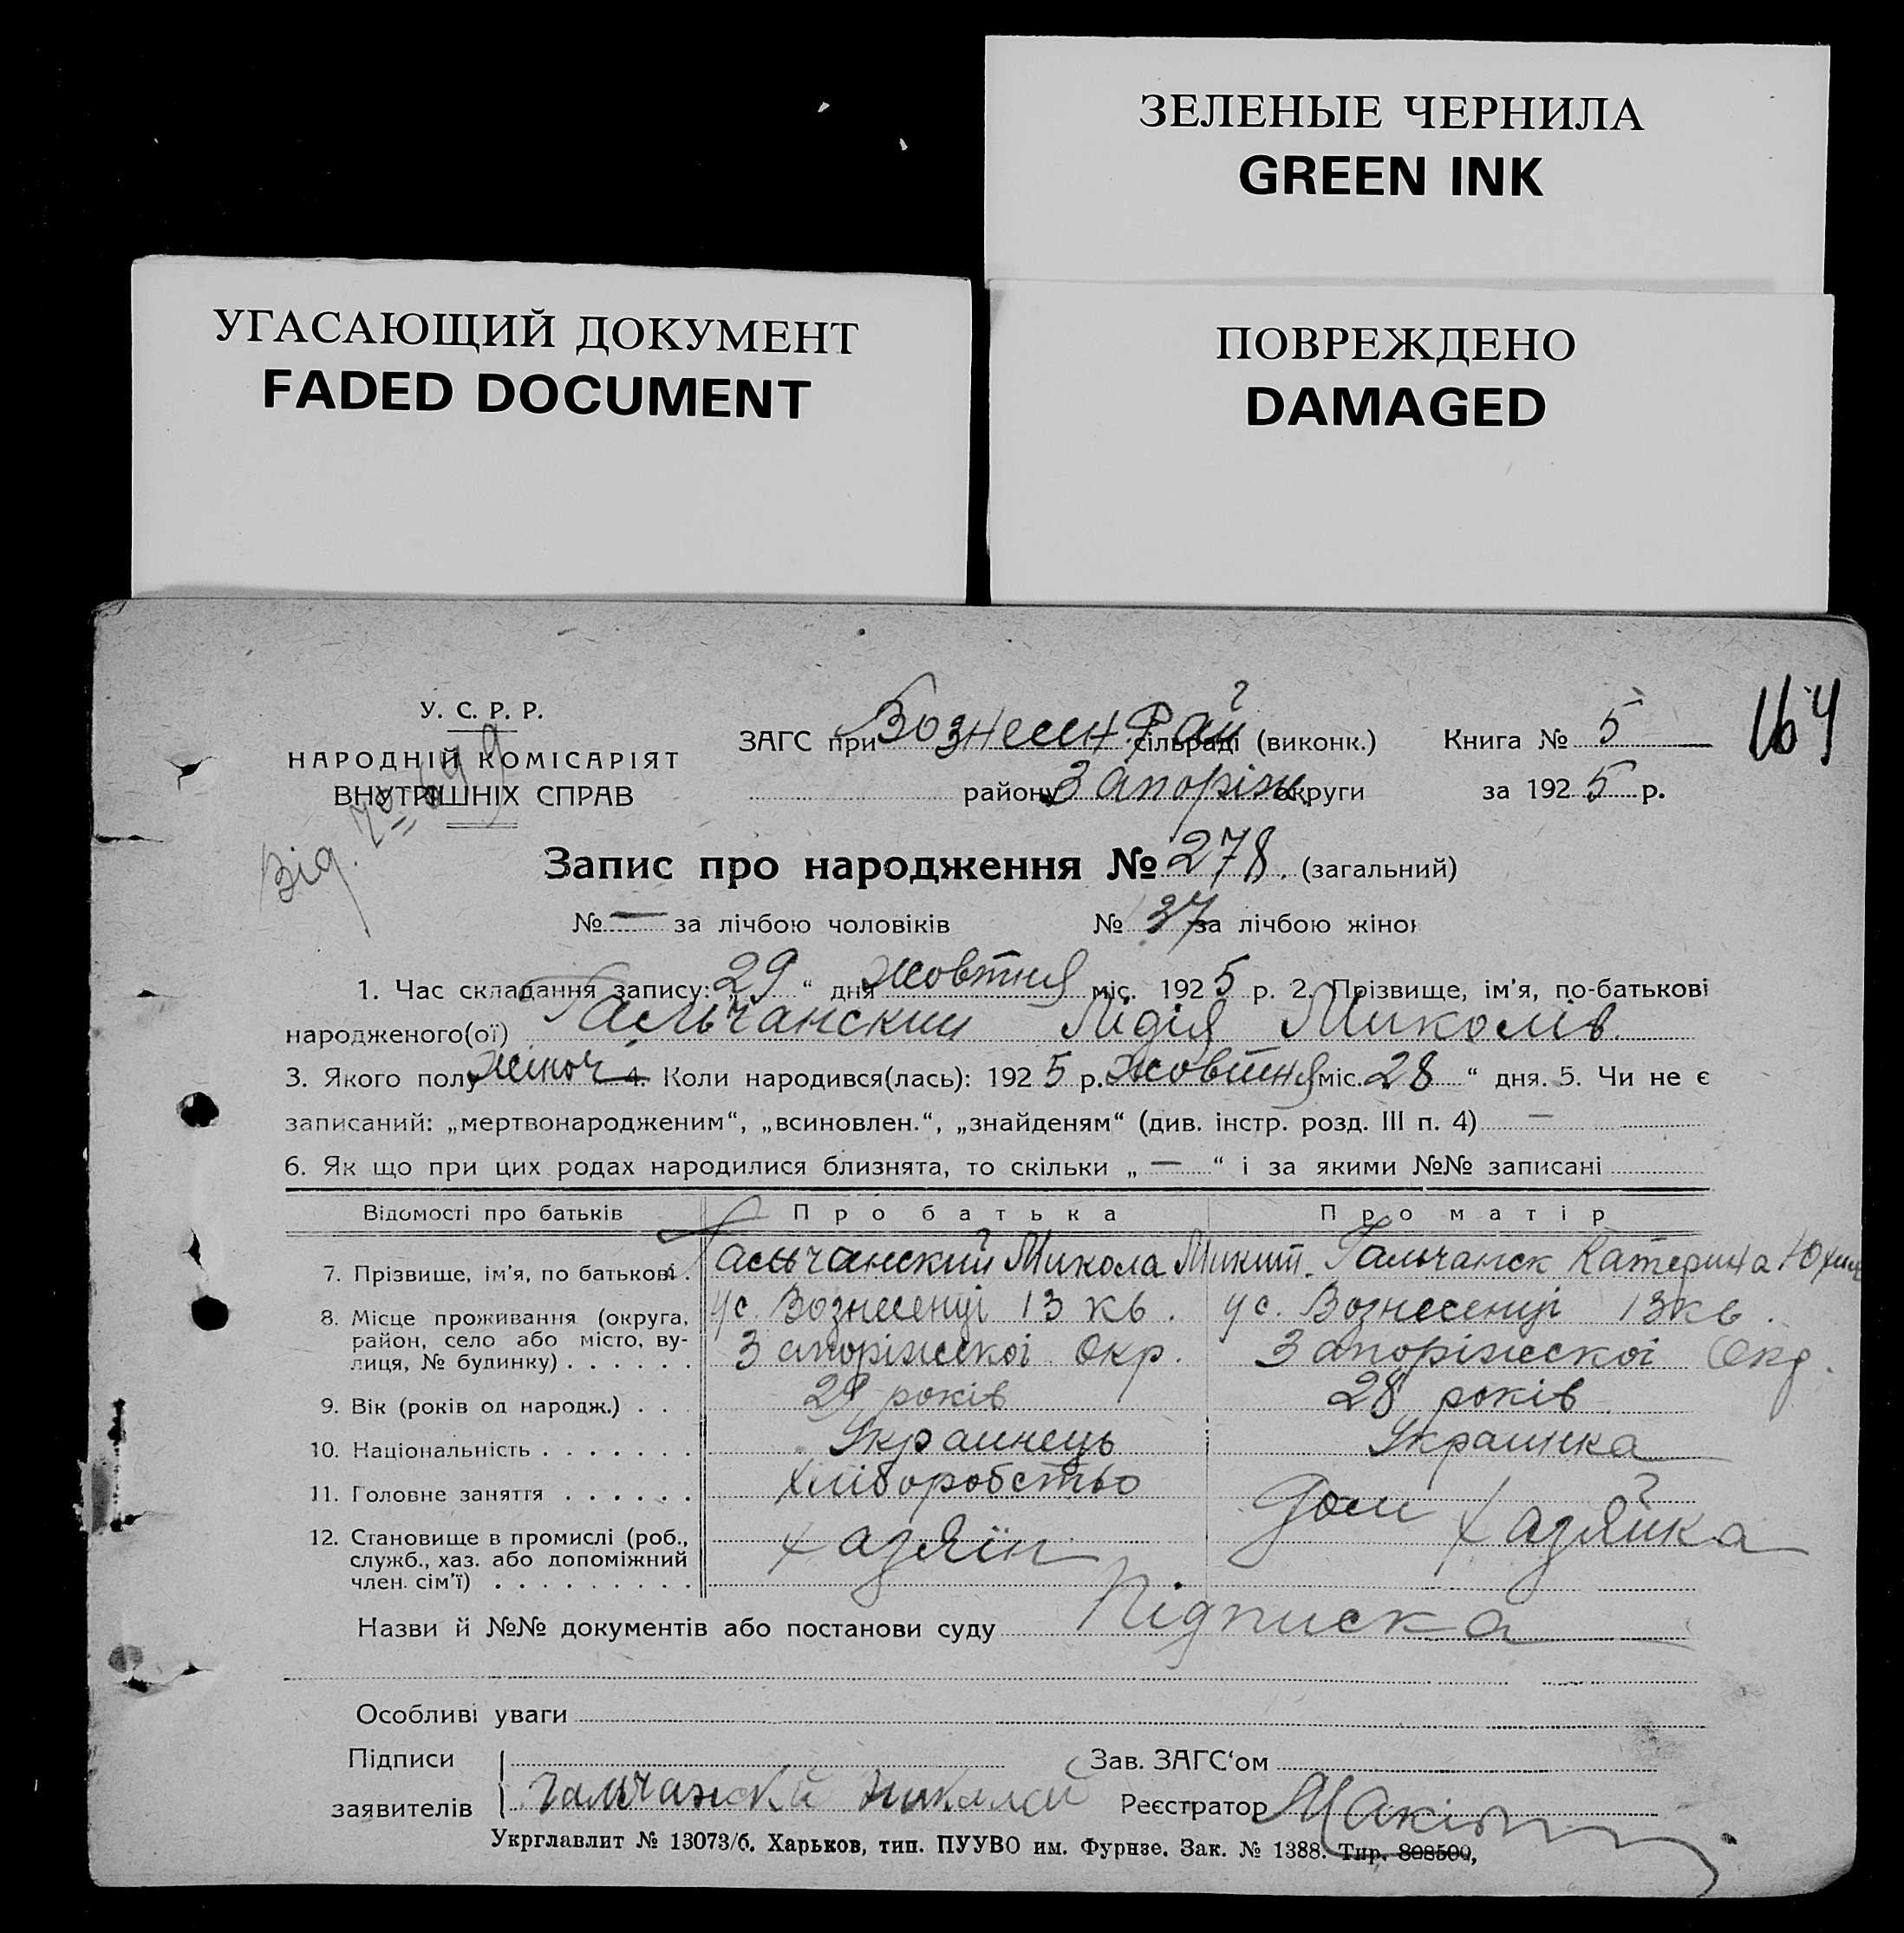 ЗЕЛЕНЫЕ ЧЕРНИЛА
GREEN INK
УГАСАЮЩИЙ ДОКУМЕНТ
FADED DOCUMENT
ПОВРЕЖДЕНО
DAMAGED
У. С. Р. Р.
НАРОДНІЙ КОМІСАРІЯТ
ВНУТРІШНІХ СПРАВ
Від.
ЗАГС при Вознесен Рай сільраді (виконк.)
району Запоріж. округи
Книга № 5
за 1925 р.
164
Запис про народження № 278. (загальний)
№ — за лічбою чоловіків № 137 за лічбою жінок
1. Час складання запису: „29“ дня жовтня міс. 1925 р. 2. Прізвище, ім'я, по-батькові
народженого(ої) Гальчанский Лідія Миколів.
3. Якого полу жіноч 4. Коли народився(лась): 1925 р. жовтня міс. 28 “ дня. 5. Чи не є
записаний: „мертвонародженим“, „всиновлен.“, „знайденям“ (див. інстр. розд. III п. 4) —
6. Як що при цих родах народилися близнята, то скільки „ — “ і за якими №№ записані
Відомості про батьків Про батька Про матір
7. Прізвище, ім'я, по батькові. Гальчанский Микола Микит. Гальчанск Катерина Юхим
8. Місце проживання (округа, район, село або місто, вулиця, № будинку) . . . . . .
у с. Вознесенці 13 кв. у с. Вознесенці 13 кв.
Запоріжскої Окр. Запоріжскої Окр.
9. Вік (років од народж.) . . 29 років 28 років
10. Національність . . . . . . . Украинець Украинка
11. Головне заняття . . . . . . Хліборобство Дом Хазяйка
12. Становище в промислі (роб., служб., хаз. або допоміжний член. сім'ї) . . . . . . . . .
Хазяїн
Назви й №№ документів або постанови суду Підписка
Особливі уваги
Підписи Зав. ЗАГС‘ом
заявителів Гальчанский Николай Реєстратор
Укрглавлит № 13073/б. Харьков, тип. ПУУВО им. Фурнзе. Зак. № 1388. Тир. 808500,